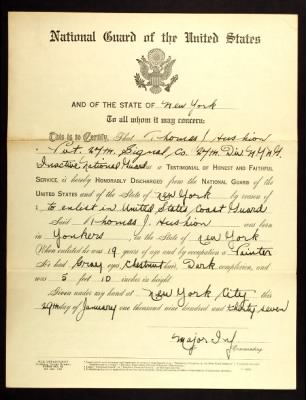 National Guard of the United States
AND OF THE STATE OF New York
To all whom it may concern:
This is to Certify, That Thomas J Hushion
Pvt. 27th. Signal Co. 27th Div NYNG.
Inactive National Guard as a TESTIMONIAL OF HONEST AND FAITHFUL
SERVICE, is hereby HONORABLY DISCHARGED from the NATIONAL GUARD of the
UNITED STATES and of the State of New York by reason of
to enlist in United States Coast Guard
Said Thomas J. Hushion was born
in Yonkers in the State of New York
When enlisted he was 19 years of age and by occupation a Painter
He had Gray eyes Chestnut hair, Dark complexion, and
was 5 feet 10 inches in height
Given under my hand at New York City this
29th day of January one thousand nine hundred and thirty seven
Major Inf.
Commanding.